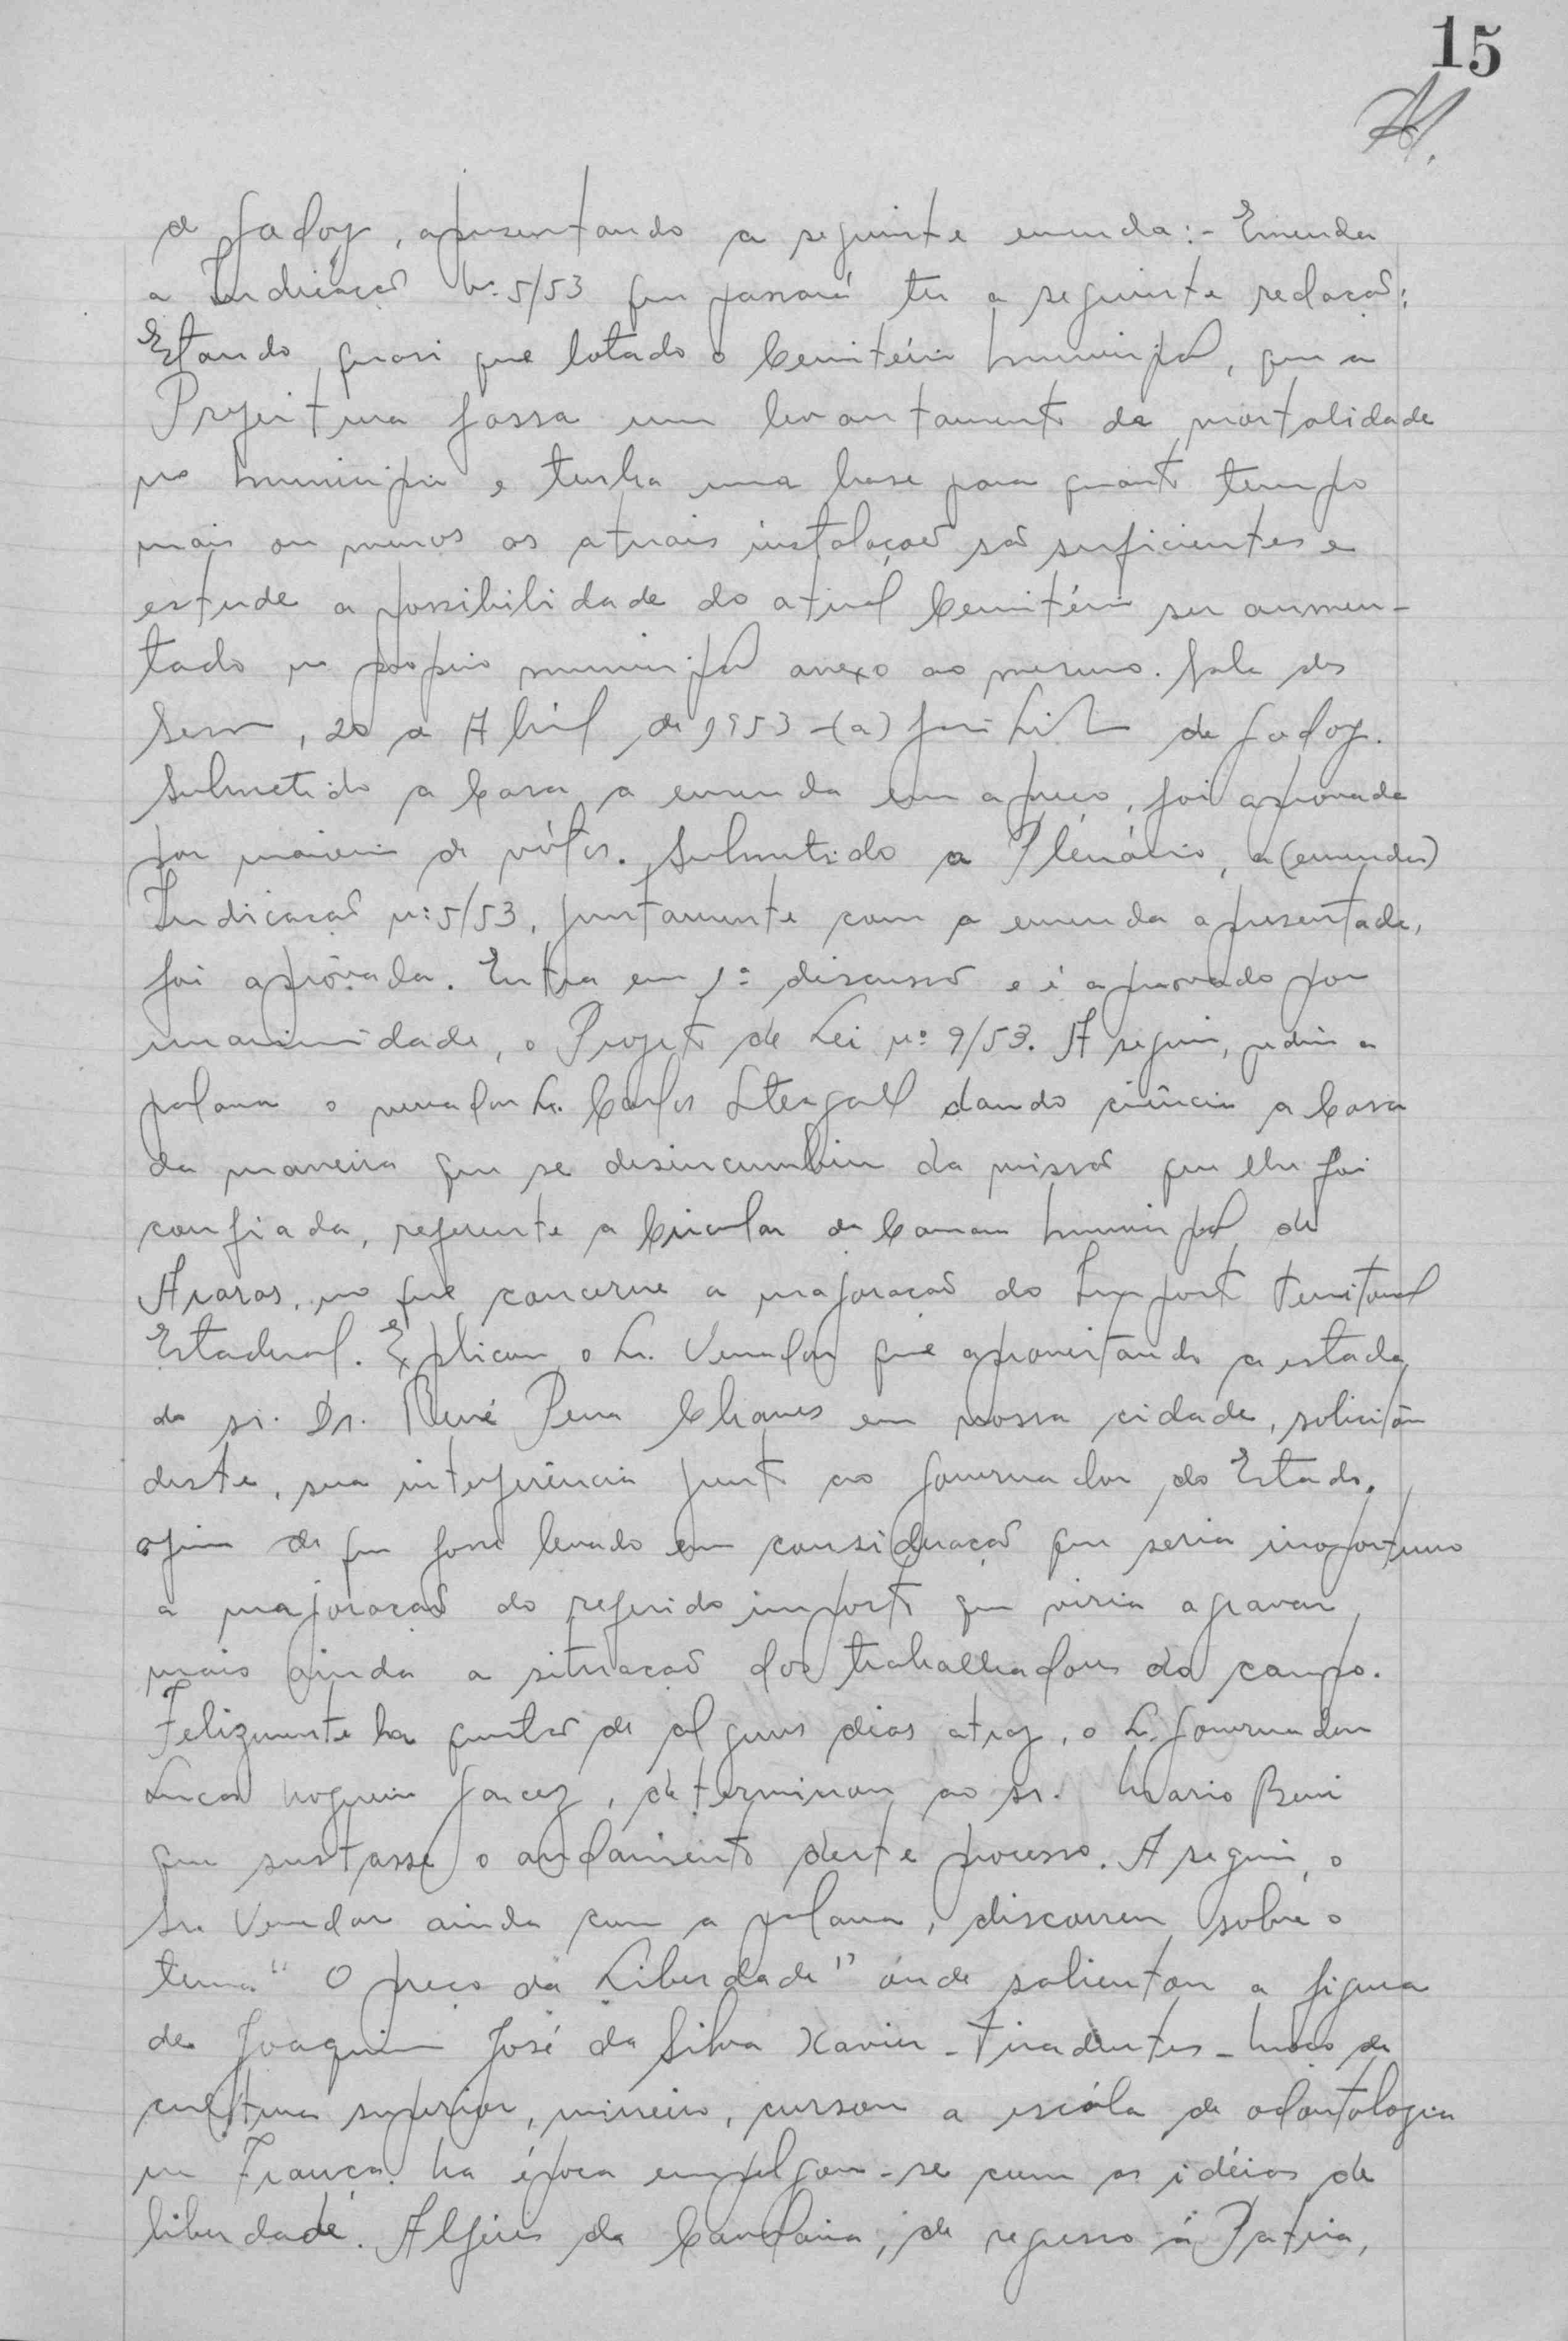 15
de Godoy, apresentando a seguinte emenda:- Emenda
a Indicação Nº 5/53 que passará ter a seguinte redação:
Estando quasi que lotado o Cemitério Municipal, que a
Prefeitura fassa um levantamento da mortalidade
no Municipio e tenha uma base para quanto tempo
mais ou menos as atuais instalações são suficientes e
estude a possibilidade do atual Cemitério ser aumen-
tado no proprio municipal anexo ao mesmo. Sala das
Sessões, 20 de Abril de 1953 -(a) José de Godoy.
Submetido a Casa a emenda em apreço, foi aprovada
por maioria de vótos. Submetido a Plenário, a (emenda)
Indicação nº 5/53, juntamente com a emenda apresentada,
foi aprovada. Entra em 1ª discussão e é aprovado por
unanimidade, o Projeto de Lei nº 9/53. A seguir, pediu a
palavra o vereador Sr. Carlos Stengel dando ciência a Casa
da maneira que se desincumbiu da missão que lhe foi
confiada, referente a Circular da Camara Municipal de
Araras, no que concerne a majoração do Imposto Territorial
Estadual. Explicou o Sr. Vereador que aproveitando a estada
do sr. Dr. Renê Pena Chaves em nossa cidade, solicitou
deste, sua interferência junto ao Governador do Estado,
afim de que fosse levado em consideração que seria inoportuno
a majoração do referido imposto que viria agravar
mais ainda a situação dos trabalhadores do campo.
Felizmente ha questão de alguns dias atraz, o Sr. Governador
Lucas Nogueira Garcez, determinou ao sr. Mario Beni
que sustasse o andamento deste processo. A seguir, o
Sr. Vereador ainda com a palavra, discorreu sobre o
tema " O preço da Liberdade" onde salientou a figura
de Joaquim José da Silva Xavier - Tiradentes - Moço de
cultura superior, mineiro, cursou a escóla de odontologia
na França. Na época empolgou-se com as idéias de
liberdade. Alferes da Cavalaria, de regresso á Patria,